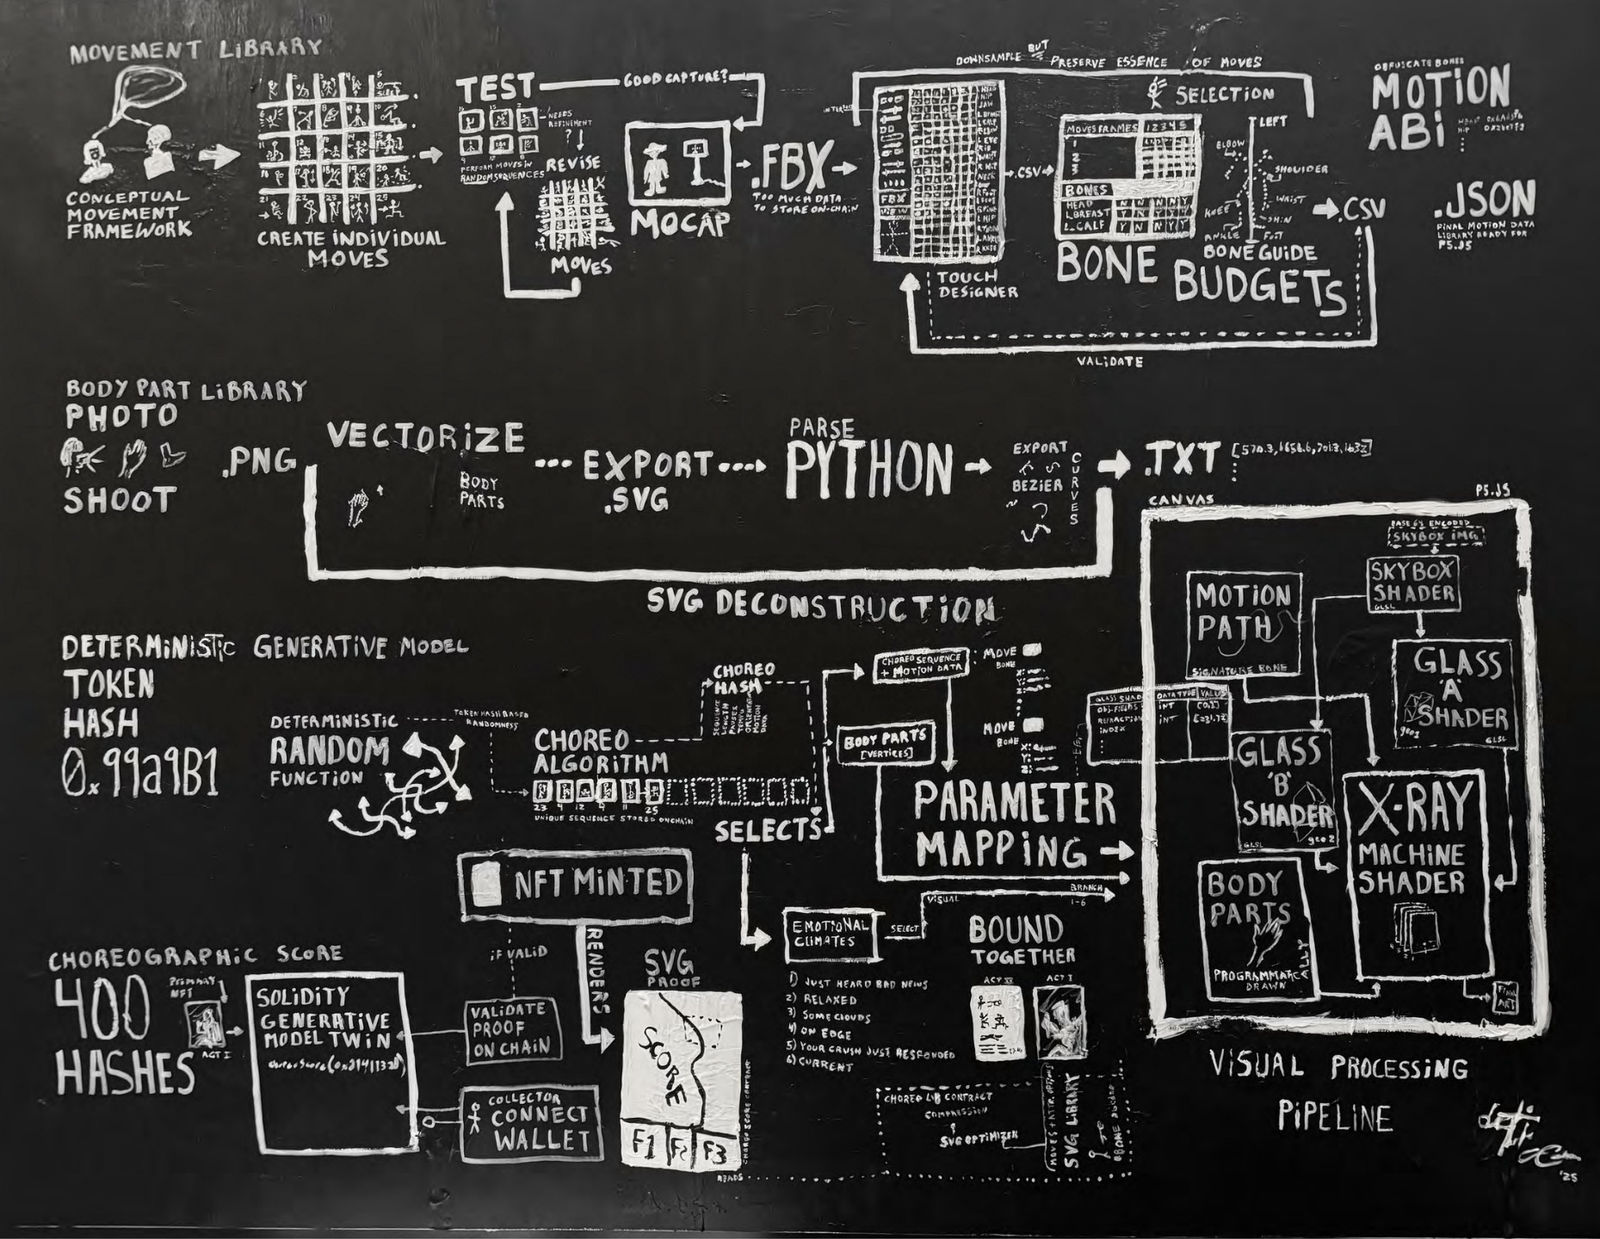 MOVEMENT LIBRARY
CONCEPTUAL
MOVEMENT
FRAMEWORK
CREATE INDIVIDUAL
MOVES
TEST
GOOD CAPTURE?
NEEDS
REFINEMENT
?
PERFORM MOVES IN
RANDOM SEQUENCES
REVISE
MOVES
MOCAP
.FBX
TOO MUCH DATA
TO STORE ON-CHAIN
DOWNSAMPLE BUT PRESERVE ESSENCE OF MOVES
FBX
VIEW
TOUCH
DESIGNER
.CSV
SELECTION
MOVES FRAMES 1 2 3 4 5
BONES
HEAD Y N N N Y
L.BREAST
L.CALF
LEFT
ELBOW
SHOULDER
WRIST
KNEE
SHIN
ANKLE
FOOT
BONE GUIDE
BONE BUDGETS
.CSV
VALIDATE
OBFUSCATE BONES
MOTION
ABI
.JSON
FINAL MOTION DATA
LIBRARY READY FOR
P5.JS
BODY PART LIBRARY
PHOTO
SHOOT
.PNG
VECTORIZE
BODY
PARTS
EXPORT
.SVG
PARSE
PYTHON
EXPORT
BEZIER
CURVES
.TXT
SVG DECONSTRUCTION
CANVAS
P5.JS
BASE 64 ENCODED
SKYBOX IMG
SKYBOX
SHADER
GLSL
MOTION
PATH
SIGNATURE BONE
GLASS
'A'
SHADER
geo1
GLSL
GLASS
'B'
SHADER
geo2
GLSL
X-RAY
MACHINE
SHADER
BODY
PARTS
PROGRAMMATICALLY
DRAWN
FINAL
ART
VISUAL PROCESSING
PIPELINE
DETERMINISTIC GENERATIVE MODEL
TOKEN
HASH
0x99a9B1
DETERMINISTIC
RANDOM
FUNCTION
TOKEN HASH BASED
RANDOMNESS
CHOREO
ALGORITHM
23 4 12 9 11 25
UNIQUE SEQUENCE STORED ONCHAIN
CHOREO
HASH
SEQUENCE
LENGTH
PAUSES
TEMPO
ORIENTATION
MOTION
DATA
SELECTS
CHOREO SEQUENCE
+ MOTION DATA
BODY PARTS
[VERTICES]
MOVE
BONE
X:
Y:
Z:
MOVE
BONE
X:
Y:
Z:
GLASS SHADER DATA TYPE VALUE
INT
REFRACTION INT
INDEX
PARAMETER
MAPPING
VISUAL
BRANCH
1-6
EMOTIONAL
CLIMATES
SELECT
1) JUST HEARD BAD NEWS
2) RELAXED
3) SOME CLOUDS
4) ON EDGE
5) YOUR CRUSH JUST RESPONDED
6) CURRENT
NFT MINTED
IF VALID
RENDERS
CHOREOGRAPHIC SCORE
400
HASHES
PRIMARY
NFT
ACT I
SOLIDITY
GENERATIVE
MODEL TWIN
VALIDATE
PROOF
ON CHAIN
COLLECTOR
CONNECT
WALLET
SVG
PROOF
SCORE
F1 F2 F3
CHOREO SCORE CONTRACT
READS
BOUND
TOGETHER
ACT II
ACT I
CHOREO LIB CONTRACT
COMPRESSION
SVG OPTIMIZER
SVG LIBRARY
'25